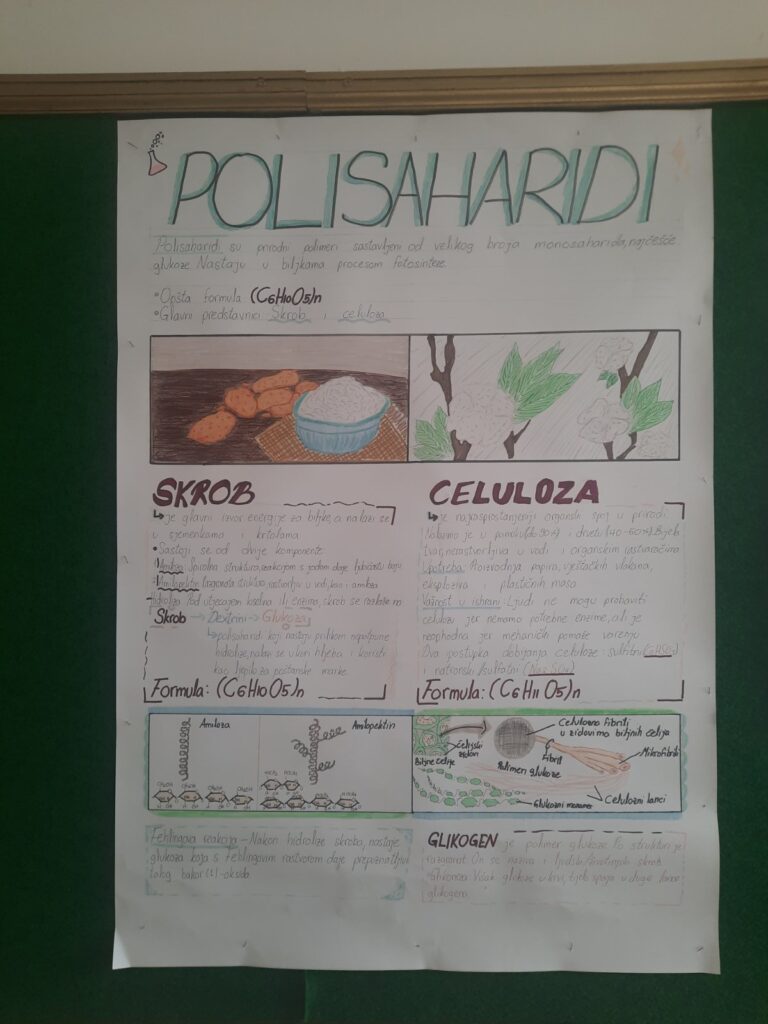 POLISAHARIDI
Polisaharidi su prirodni polimeri sastavljeni od velikog broja monosaharida, najčešće
glukoze. Nastaju u biljkama procesom fotosinteze.
•Opšta formula (C6H10O5)n
•Glavni predstavnici Skrob i celuloza
SKROB
je glavni izvor energije za biljke, a nalazi se
u sjemenkama i krtolama
•Sastoji se od dvije komponente
Amiloza Spiralna struktura, reakcijom s jodom daje ljubičastu boju
Amilopektin razgranata struktura, rastvorljiv u vodi, kao i amiloza
Hidroliza Pod utjecajem kiselina ili enzima, skrob se razlaže na
Skrob → Dextrini → Glukoza
polisaharidi koji nastaju prilikom nepotpune
hidrolize, nalazi se u kori hljeba i koristi
kao ljepilo za poštanske marke
Formula: (C6H10O5)n
CELULOZA
je najrasprostanjeniji organski spoj u prirodi
Nalazimo je u pamuku i drvetu Bijela
tvar, nerastvorljiva u vodi i organskim rastvaračima
Upotreba: Proizvodnja papira, vještačkih vlakana,
eksploziva i plastičnih masa
Važnost u ishrani - Ljudi ne mogu probaviti
celulozu jer nemamo potrebne enzime, ali je
neophodna jer mehanički pomaže varenju
Dva postupka dobijanja celuloze: sulfitni
i natronski /sulfatni
Formula: (C6H11O5)n
Amiloza
Amilopektin
Celulozno fibrili
u zidovima biljnih ćelija
Ćelijski
zidovi
Biljne ćelije
Fibril
Mikrofibrili
Polimer glukoze
Glukozni monomer
Celulozni lanci
Fehlingova reakcija - Nakon hidrolize skroba, nastaje
glukoza koja s Fehlingovim rastvorom daje prepoznatljivi
talog bakar(I)-oksida
GLIKOGEN je polimer glukoze Po strukturi je
razgranat On se naziva i ljudski/životinjski skrob
Višak glukoze u krvi, tijelo spaja u duge lance
glikogena